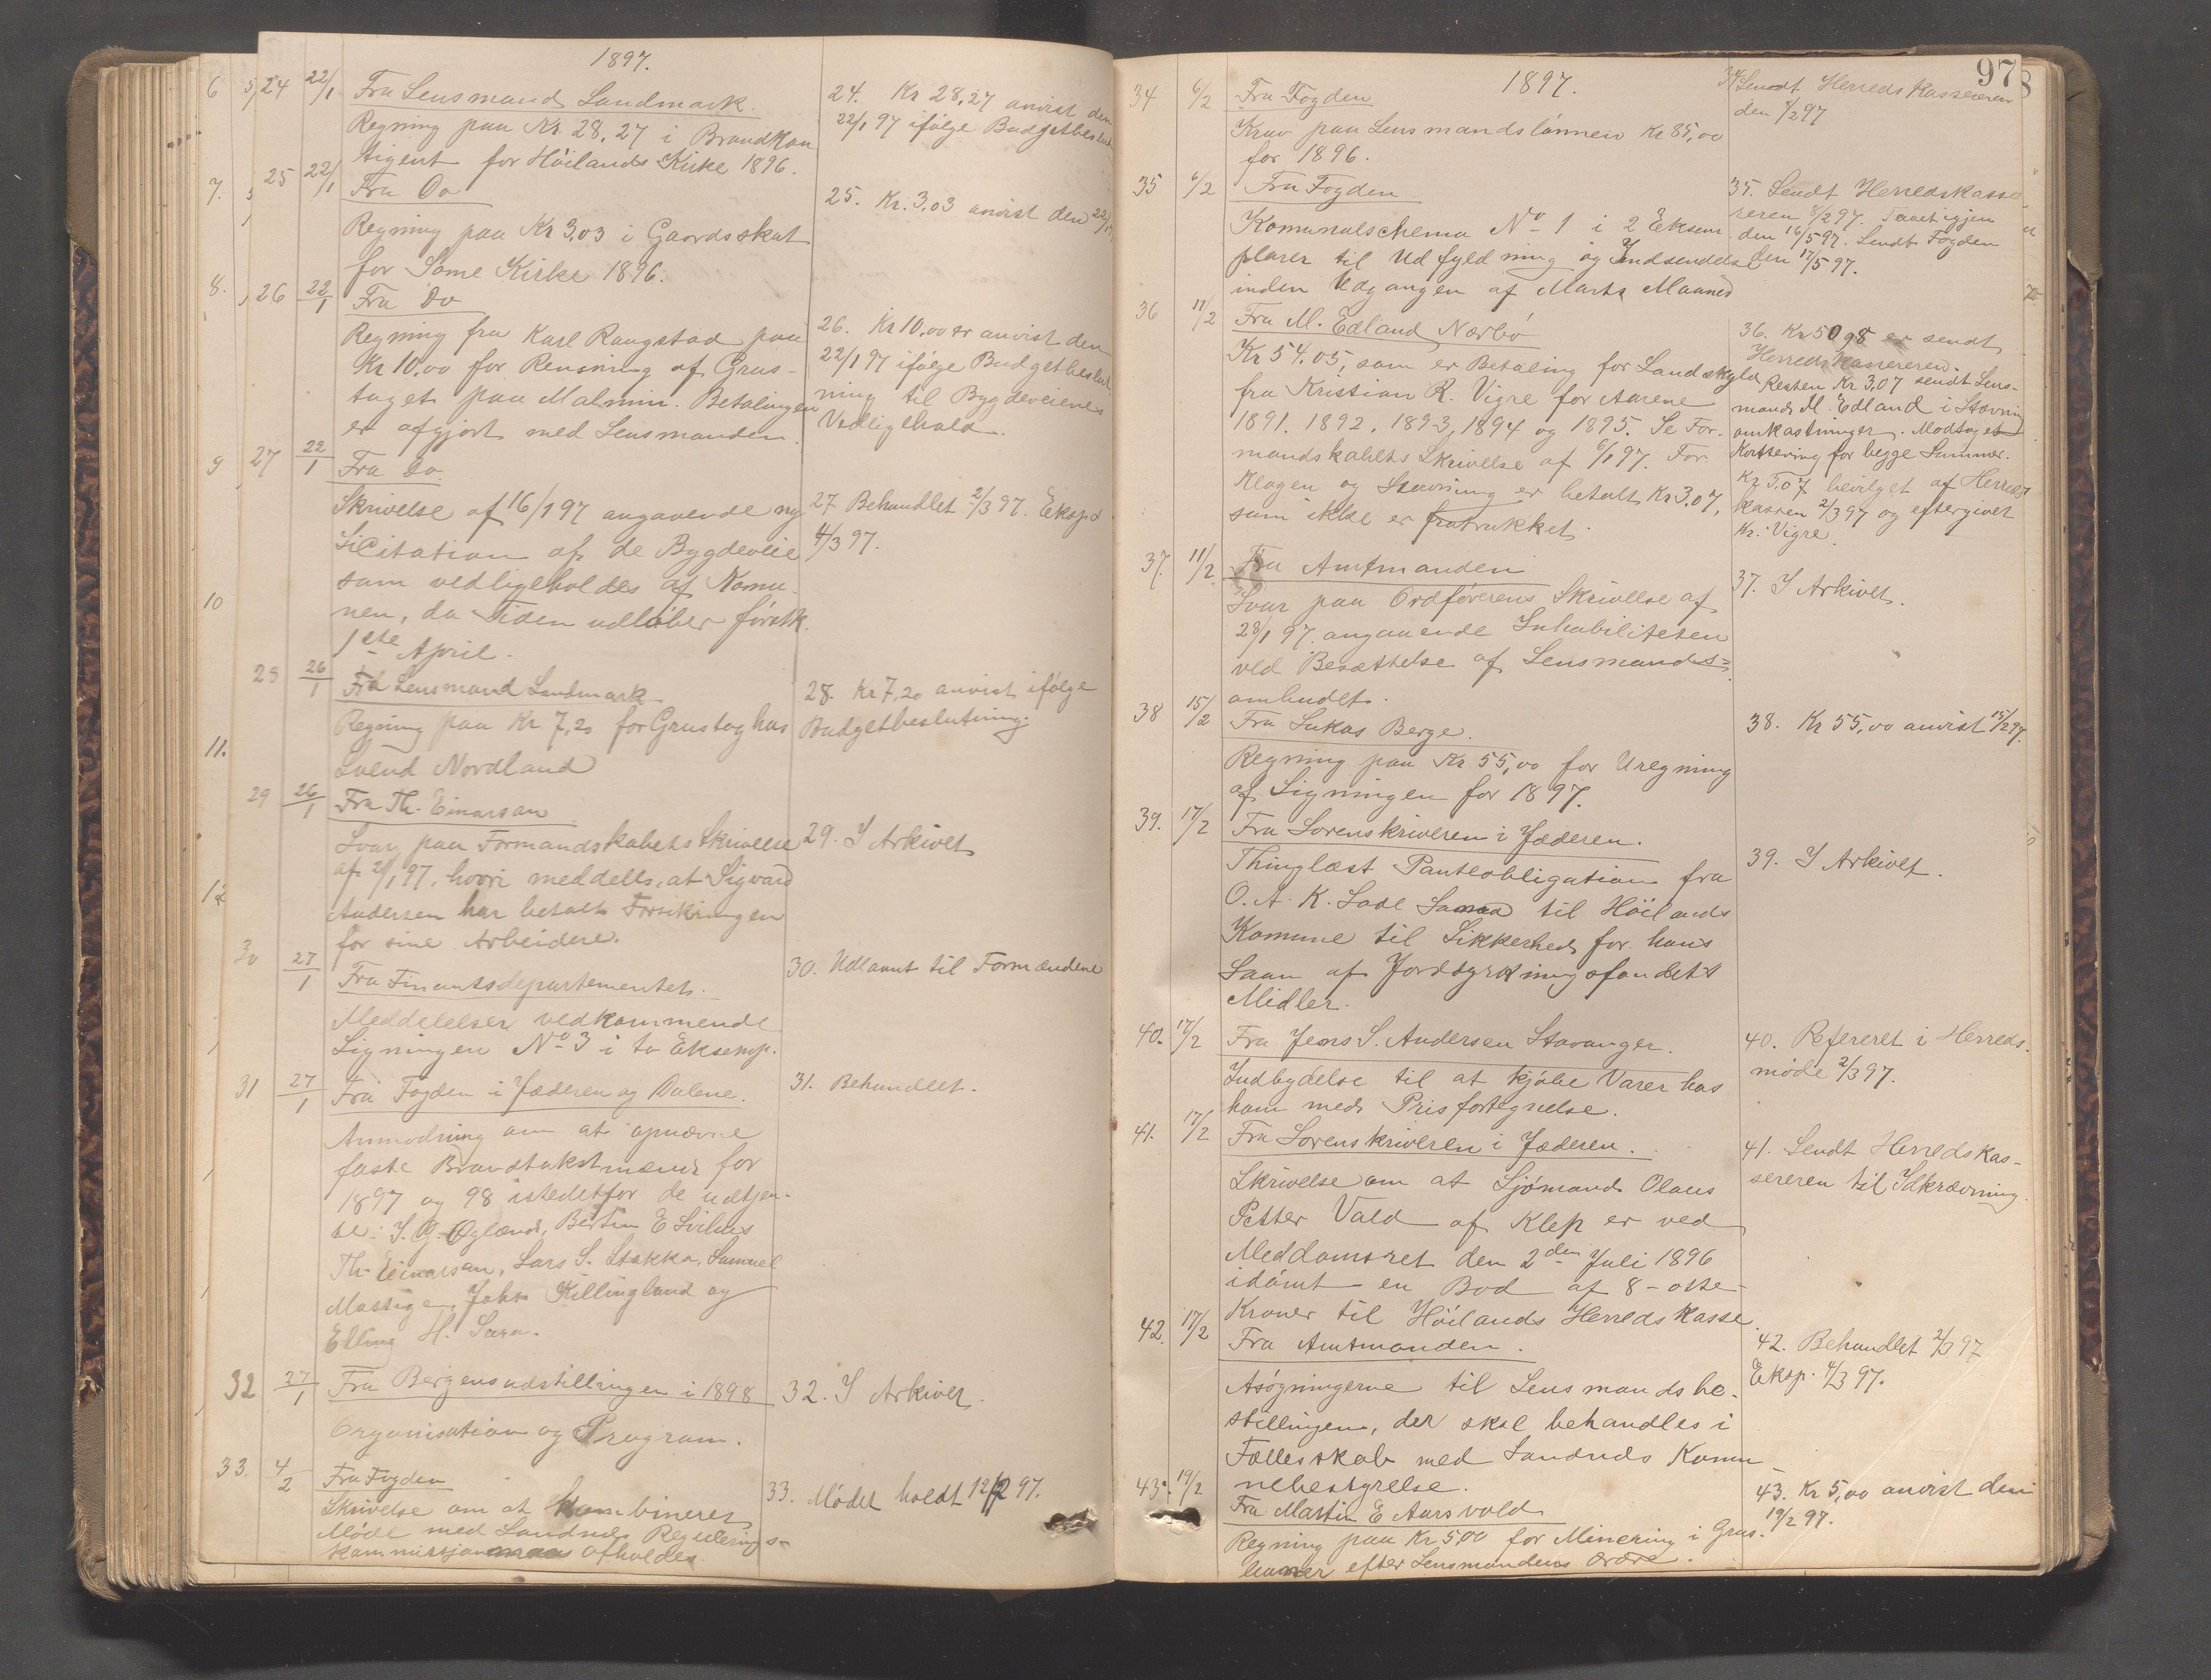 1897.
24 22/1 Fra Lensmand Landmark.
Regning paa Kr 28,27 i Brandkon
tigent for Höilands Kirke 1896.
24. Kr 28,27 anvist den
22/1 97 ifölge Budgetbeslut-
25 22/1 Fra Do
Regning paa Kr 3,03 i Gaardsskat
for Same Kirke 1896.
25. Kr. 3,03 anvist den 22/1
26 22/1 Fra Do
Regning fra Karl Raugstad paa
Kr 10,00 for Rensning af Grus-
taget paa Malmin. Betalingen
er afgjort med Lensmanden.
26. Kr 10,00 er anvist den
22/1 97 ifölge Budgetbeslut-
ning til Bygdeveienes
Vedligehold.
27 22/1 Fra Do.
Skrivelse af 16/1 97 angaaende ny
Licitation af de Bygdeveie
som vedligeholdes af Komu-
nen, da Tiden udlöber förstk.
1ste April.
27 Behandlet 2/3 97. Eksp.
4/3 97.
28 26/1 Fra Lensmand Landmark
Regning paa Kr 7,20 for Grustag hos
Svend Nordland
28. Kr 7,20 anvist ifölge
Budgetbeslutning.
29 26/1 Fra Th. Einarsen
Svar paa Formandskabets Skrivelse
af 21/1 97, hvori meddeles, at Sigvard
Andersen har betalt Forsikringen
for sine Arbeidere.
29. I Arkivet
30 27/1 Fra Finantsdepartementet.
Meddelelser vedkommende
Ligningen No 3 i to Eksemp.
30. Udlaant til Formændene
31 27/1 Fra Fogden i Jæderen og Dalene.
Anmodning om at opnævne
faste Brandtakstmænd for
1897 og 98 istedetfor de udtjen-
te: I. G. Ogland, Bertin E Svihus
Th. Einarsen, Lars S. Stokka, Samuel
Massige, John Killingland og
Elling H. Særa.
31. Behandlet.
32 27/1 Fra Bergensudstillingen i 1898
Organisation og Program.
32. I Arkivet.
33. 4/2 Fra Fogden
Skrivelse om at kombineret
Möde med Sandnes Regulerings-
kommissjon afholdes.
33. Mödet holdt 12/2 97.
97
1897.
34 6/2 Fra Fogden
Krav paa Lensmandslönnen Kr 85,00
for 1896.
34 Sendt Herredskassereren
den 8/2 97
35 6/2 Fra Fogden
Komunalschema No 1 i 2 Eksem-
plarer til Udfyldning og Indsendelse
inden Udgangen af Marts Maaned
35. Sendt Herredskasse-
reren 8/2 97. Faaet igjen
den 16/5 97. Sendt Fogden
den 17/5 97.
36 11/2 Fra M. Edland Nærbö
Kr 54.05, som er Betaling for Landskyld
fra Kristian R. Vigre for Aarene
1891. 1892, 1893, 1894 og 1895. Se For-
mandskabets Skrivelse af 6/1 97. For
Klagen og Stævning er betalt Kr 3.07,
som ikke er fratrukket.
36. Kr 50 98 er sendt
Herredskassereren.
Resten Kr 3,07 sendt Lens-
mand M. Edland i Stævning
omkastninger. Modtaget
Kvittering for begge Summer.
Kr 3.07 bevilget af Herreds
kassen 2/3 97 og eftergivet
Kr. Vigre.
37. 11/2 Fra Amtmanden
Svar paa Ordförerens Skrivelse af
28/1 97. angaaende Inhabiliteten
ved Besættelse af Lensmands-
ombudet.
37. I Arkivet.
38 15/2 Fra Lukas Berge.
Regning paa Kr 55,00 for Uregning
af Ligningen for 1897.
38. Kr 55,00 anvist 15/2 97.
39. 17/2 Fra Sorenskriveren i Jæderen.
Thinglæst Panteobligation fra
O. A. K. Lode til Höilands
Komune til Sikkerhed for hans
Laan af Jorddyrkningsfondets
Midler.
39. I Arkivet.
40. 17/2 Fra Jens S. Andersen Stavanger.
Indbydelse til at kjöbe Varer hos
ham med Prisfortegnelse.
40. Refereret i Herreds-
möde 2/3 97.
41. 17/2 Fra Sorenskriveren i Jæderen.
Skrivelse om at Sjömand Olaus
Petter Vald af Klep er ved
Meddomsret den 2den Juli 1896
idömt en Bod af 8 – otte –
Kroner til Höilands Herredskasse.
41. Sendt Herredskas-
sereren til Idkrævning.
42. 17/2 Fra Amtmanden.
Asögningerne til Lensmandsbe-
stillingen, der skal behandles i
Fællesskab med Sandnes Komu-
nebestyrelse.
42. Behandlet 2/3 97
Eksp. 4/3 97.
43. 19/2 Fra Martin E Aarsvold
Regning paa Kr 5,00 for Minering i Grus-
efter Lensmandens Ordre.
43. Kr 5,00 anvist den
19/2 97.